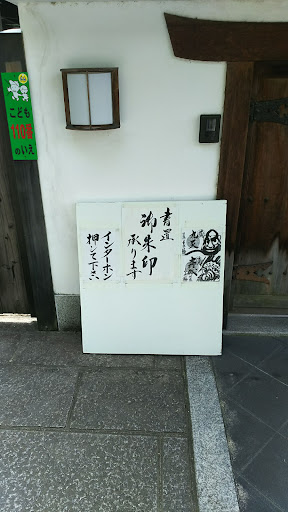 こども
110番
のいえ
書置
御朱印
承ります
インターホン
押して下さい